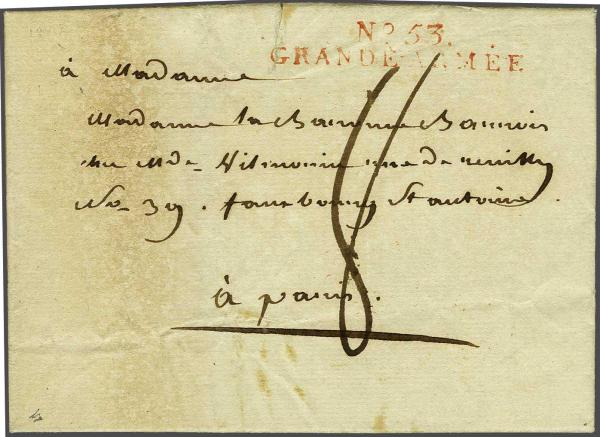 No 53.
GRANDE ARMÉE
à Madame
Madame la Baronne
rue de reuilly
No 39. faubourg St antoine
à paris.
8